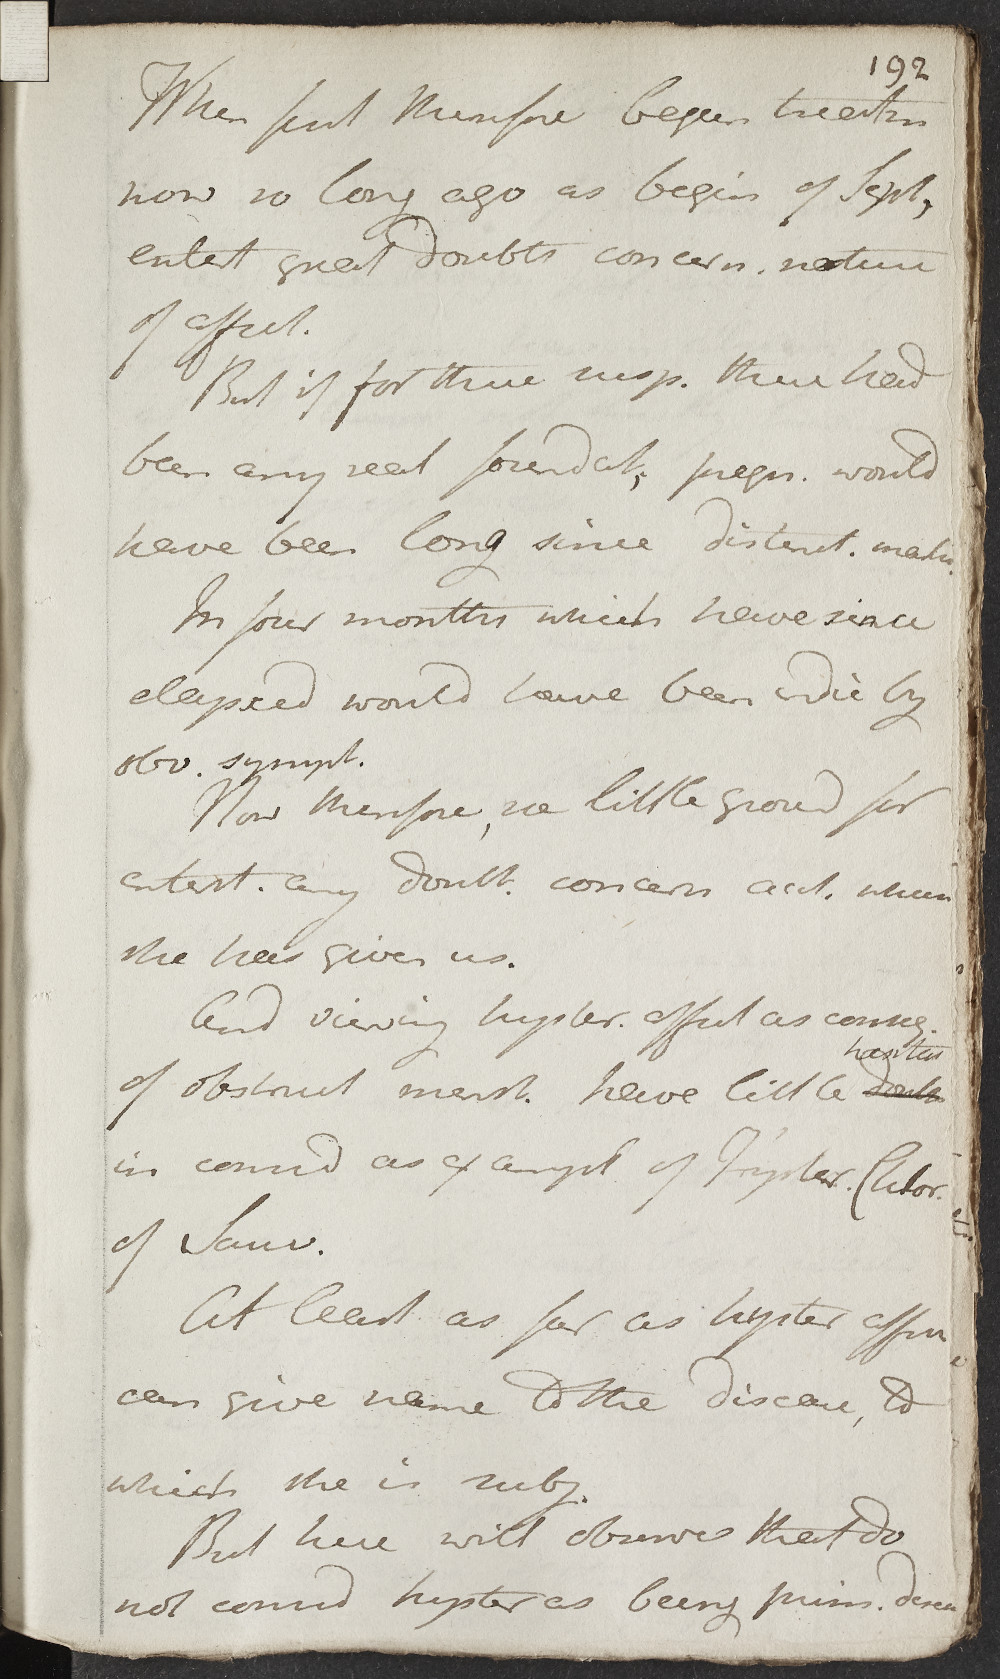 192
When first therefore began treatm
now so long ago as begin of Sept,
entert great doubts concern. nature
of affect.
But if for these susp. there had
been any real foundat, pregn. would
have been long since distinct. mark.
In four months which have since
elapsed would have been indic by
obv. sympt.
Now therefore, see little ground for
entert. any doubt. concern acct. which
she has given us.
And viewing hyster. affect as conseq.
of obstruct menst. have little hesitat
in consid as exampl of Hyster. Chlor.
of Sauv.
At least as far as hyster affect
can give name to the disease, to
which she is subj.
But here will observe that do
not consid hyster as being prim. diseas